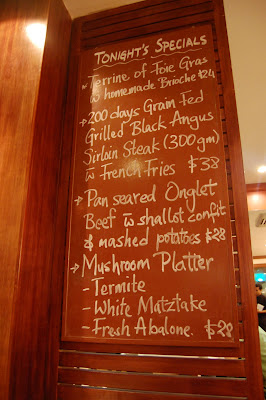 TONIGHT'S SPECIALS
→ Terrine of Foie Gras
w̄ homemade Brioche $24
→ 200 days Grain Fed
Grilled Black Angus
Sirloin Steak (300gm)
w̄ French Fries $38
→ Pan seared Onglet
Beef w̄ shallot confit
& mashed potatoes $28
→ Mushroom Platter
- Termite
- White Matztake
- Fresh Abalone. $28